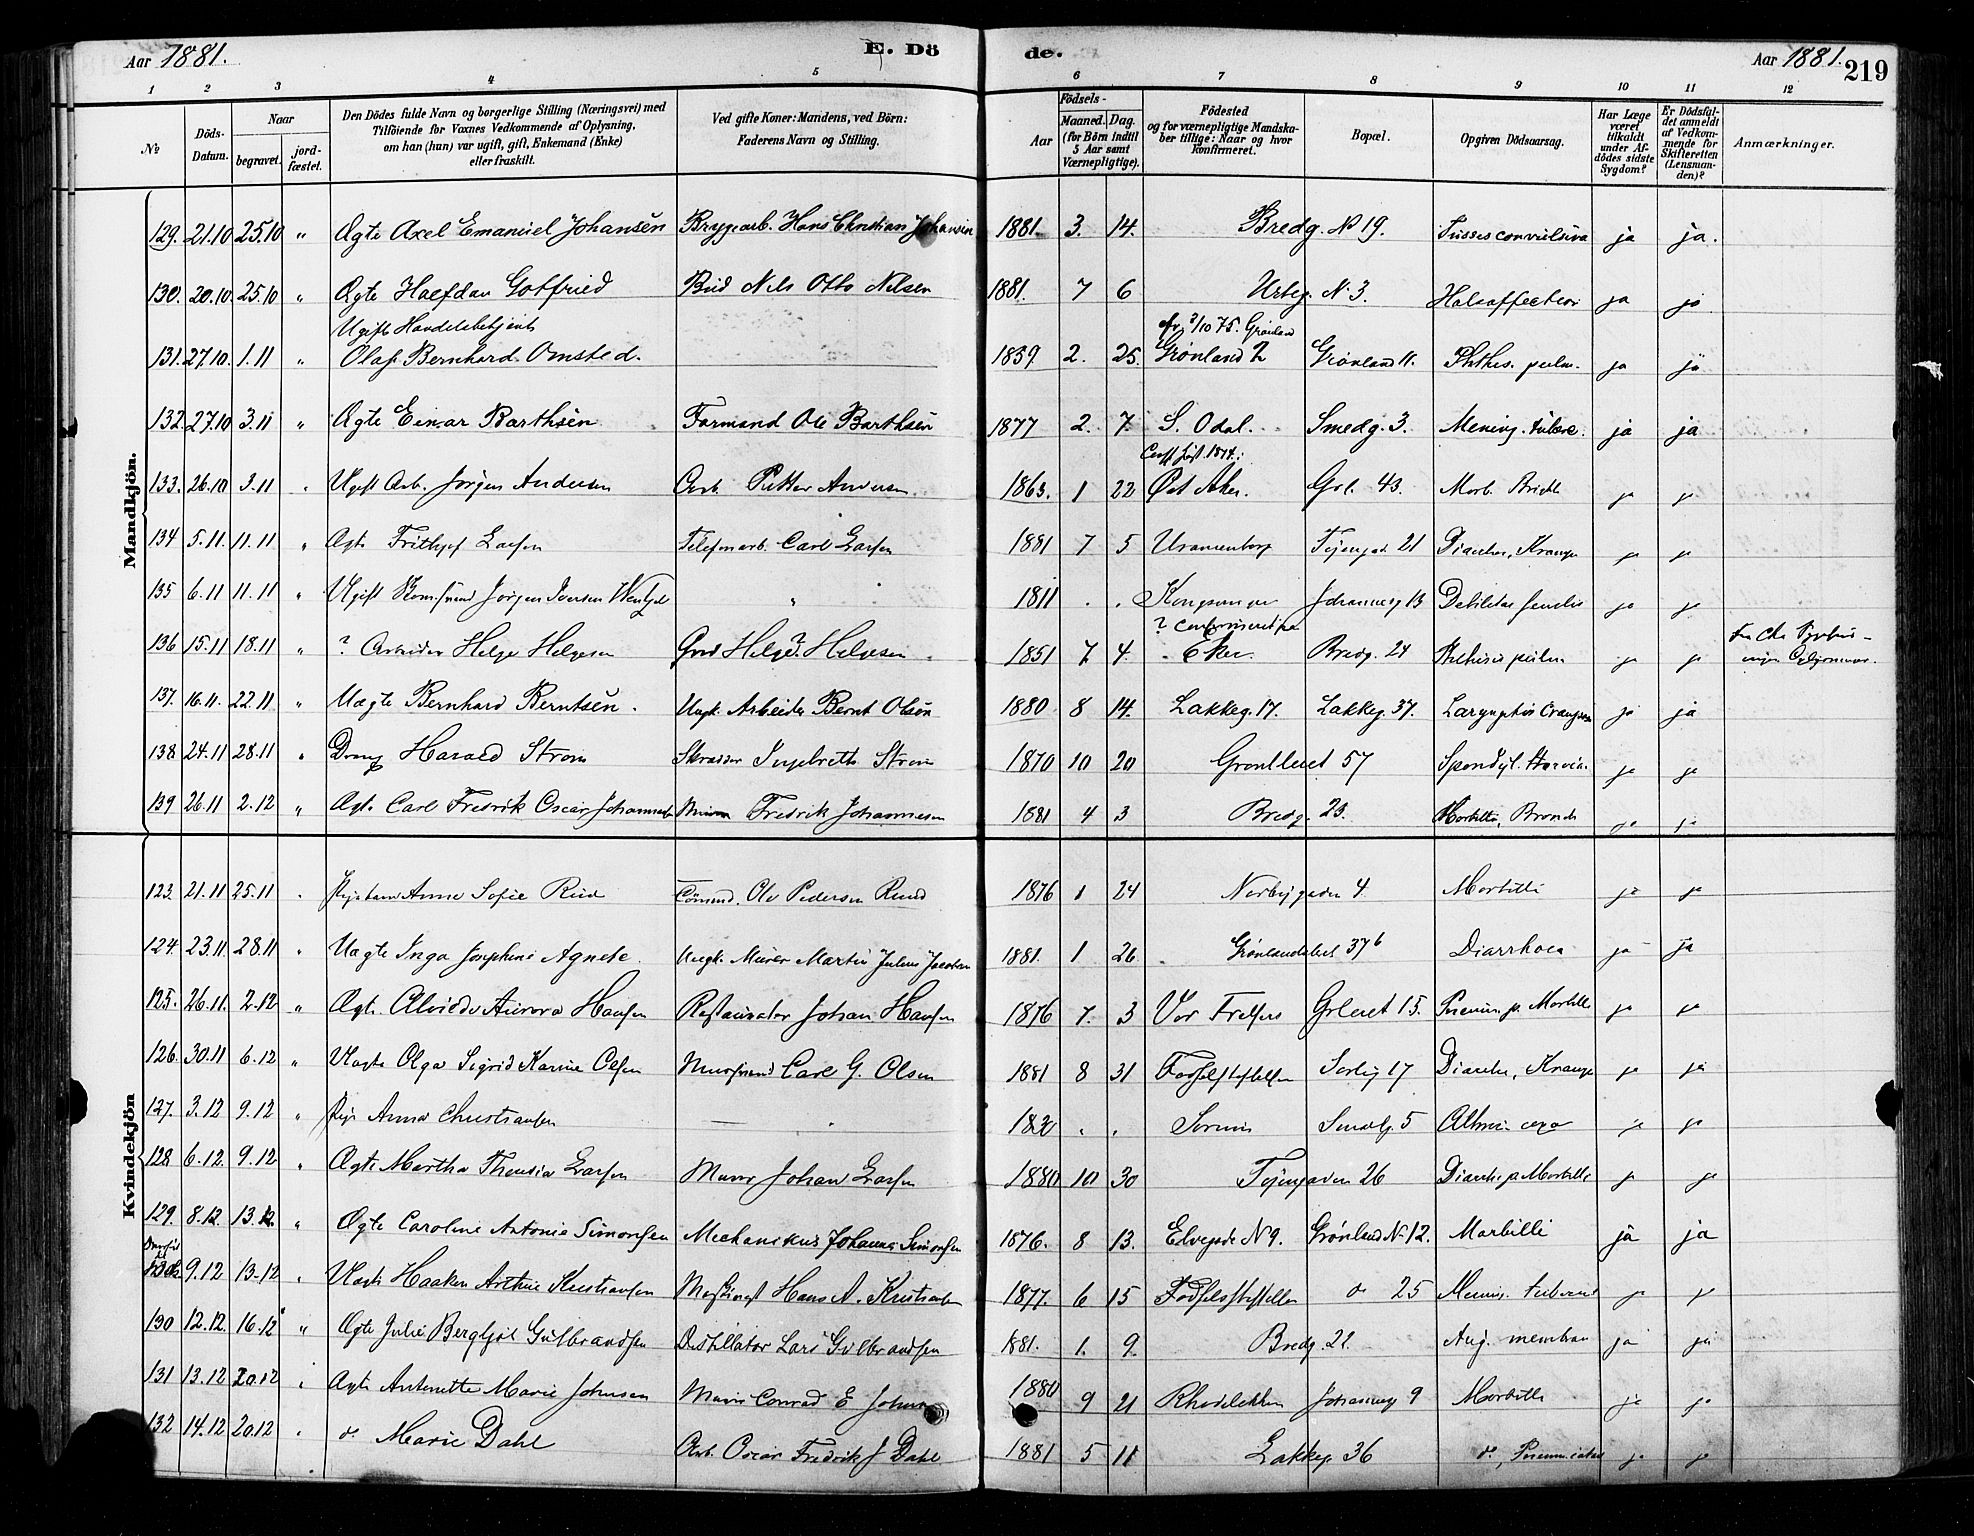 Aar 1881. E. Dö de. Aar 1881. 219
1 2 3 4 5 6 7 8 9 10 11 12
No Döds-Datum. Naar begravet. jord-fæstet. Den Dödes fulde Navn og borgerlige Stilling (Næringsvei) med Tilföiende for Voxnes Vedkommende af Oplysning, om han (hun) var ugift, gift, Enkemand (Enke) eller fraskilt. Ved gifte Koner: Mandens, ved Börn: Faderens Navn og Stilling. Födsels- Aar Maaned. Dag. (for Börn indtil 5 Aar samt Værnepligtige). Födested og for værnepligtige Mandskaber tillige: Naar og hvor konfirmeret. Bopæl. Opgiven Dödsaarsag. Har Læge været tilkaldt under Afdödes sidste Sygdom? Er Dödsfaldet anmeldt af Vedkommende for Skifteretten (Lensmanden)? Anmærkninger.
Mandkjön.
129. 21.10 25.10 " Ægte Axel Emanuel Johansen Bryggearb. Hans Christian Johansen 1881. 3. 14. Bredg. No 19. Tussis convulsiva ja ja.
130. 20.10. 25.10 " Ægte Halfdan Gotfried Bud Nils Otto Nilsen 1881. 7 6 Urteg. N. 3. Halsaffection ja ja
Ugift Handelsbetjent 75. Grønland
131. 27.10. 1.11 " Olaf Bernhard Omsted. 1859 2. 25. Grønland 2 Grønland 11. Phthis. pulm. ja ja
132. 27.10 3.11 " Ægte Einar Barthsen Formand Ole Barthsen 1877 2. 7. S. Odal. Smedg. 3. Mening. tuberc. ja ja
133. 26.10 3.11 Ugift Arb. Jörgen Andersen Arb. Petter Andersen 1863. 1 22 Øst Aker. Grl. 43. Morb. ja ja
134 5.11. 11.11 " Ægte Frithjof Larsen Telefonarb. Carl Larsen 1881 7 5 Uranienborg Tøiengad. 21 Diarrhe, Krampe ja ja
135 6.11 11.11 " Ugift Jörgen Iversen " 1811 . . Johannesg 13 Debilitas senilis ja ja
136 15.11 18.11 " ? Arbeider Helge Helgesen Helge Helgesen 1851 7 4. Eker. Bredg. 24 Phthisis pulm. ja ja
137. 16.11. 22.11 " Uægte Bernhard Berntsen. Ungk. Arbeider Bernt Olsen 1880 8 14. Lakkeg. 17. Lakkeg. 37. Laryngitis ja ja
138 24.11 28.11 " Dreng Harald Strøm Skrædder Ingebreth Strøm 1870 10 20 Grønlleret 57 Spondyl. ja ja
139 26.11 2.12 " Ægte Carl Fredrik Oscar Johannesen Fredrik Johannesen 1881 4 3 Bredg. 23. Morbilli, Bronch ja ja
Kvindekjön
123. 21.11 25.11 Anna Sofie Ruud Ole Pedersen Ruud 1876 1 24 Norbygaden 4 Morbilli ja ja
124. 23.11. 28.11 " Uægte Inga Josephine Agnete. Ungk. Murer Martin Julius Jacobsen 1881. 1 26. Grønlandsleret 37b Diarrhoea ja ja
125. 26.11. 2.12 " Ægte Alvilde Aurora Hansen Restauratør Johan Hansen 1876 7. 3 Vor Frelsers Grleret 15. Pneum. p. Morbilli ja ja
126. 30.11 6.12 " Uægte Olga Sigrid Karine Olsen Carl G. Olsen 1881 8 31 Fødselsstiftelsen Sørlig 17 Diarrhe, Krampe ja ja
127. 3.12 9.12 " Anna Christiansen " 1830 . . Sørum Smalg. 5 ja ja
128 6.12. 9.12 " Ægte Martha Theresia Larsen Murer Johan Larsen 1880 10 30 Tøiengaden 26 Diarrhe p. Morbilli ja ja
129. 8.12 13.12. " Ægte Caroline Antonie Simonsen Mechanikus Johannes Simonsen 1876. 8 13. Elvegade N 9. Grønland N. 12. Morbilli ja ja
9.12 13.12 Haakon Arthur Kristiansen Hans A. Kristiansen 1877. 6 15 Fødselsstiftelsen do 25 ja ja
130 12.12. 16.12 " Ægte Julie Bergljot Gulbrandsen Destillator Lars Gulbrandsen 1881. 1. 9. Bredg. 21. Ang. membran ja ja
131 13.12 20.12 Ægte Antonette Marie Johnsen Murer Conrad E Johnsen 1880 9 21 Rhodeløkken Johannesg 9 Morbilli ja ja
132 14.12 20.12 do Marie Dahl Arb. Oscar Fredrik J Dahl 1881 5 11 Lakkeg. 36 do, ja ja